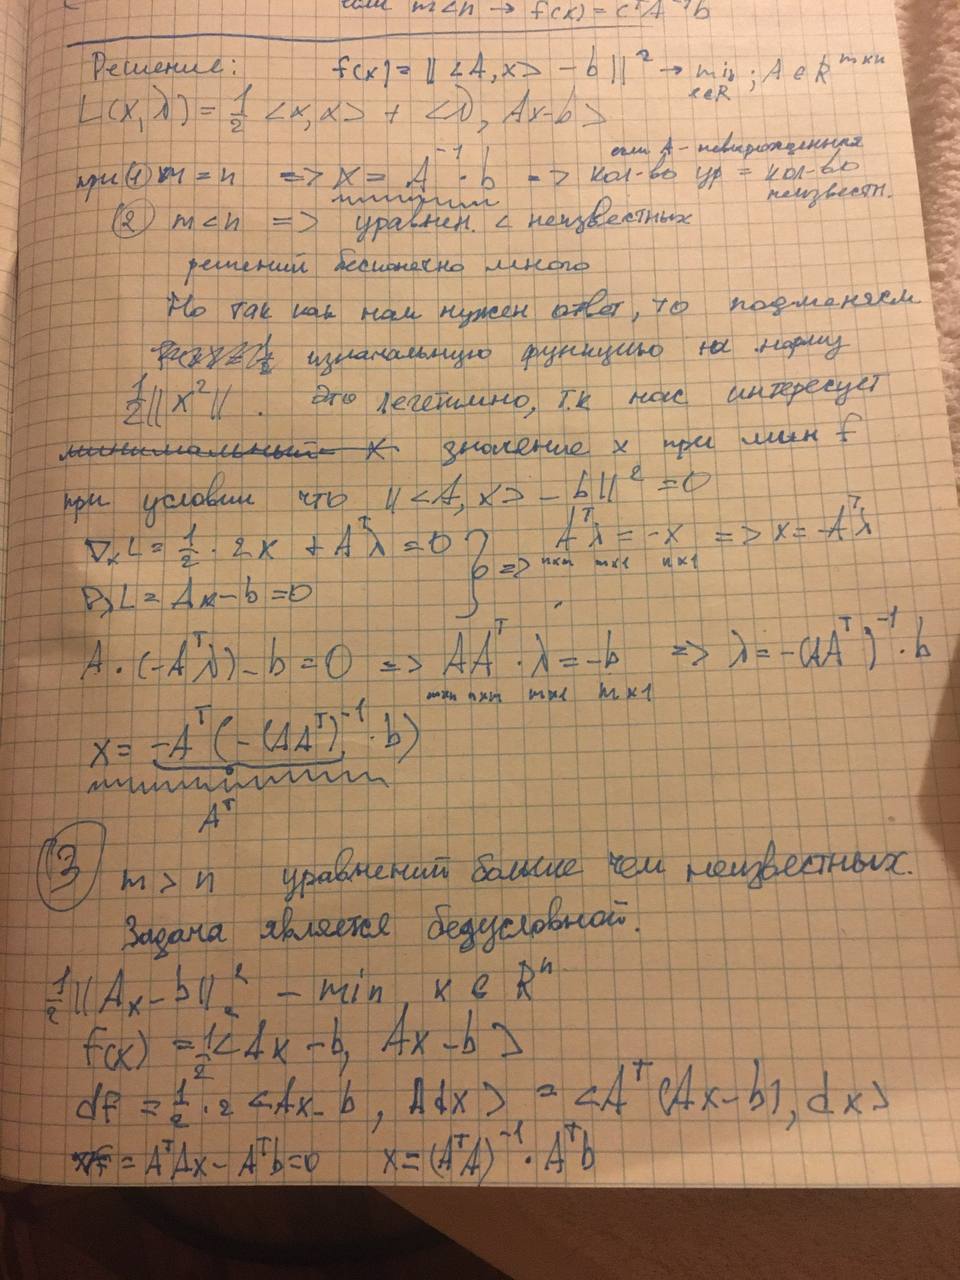 если m<n → f(x) = cᵀA⁻¹b
Решение: f(x) = ||<A,x> - b||² → min x∈R ; A ∈ R^m×n
L(x,λ) = 1/2 <x,x> + <λ, Ax-b>
если A - невырожденная
при (1) m = n => x = A⁻¹ · b => кол-во ур = кол-во неизвестн.
(2) m < n => уравнен. < неизвестных
решений бесконечно много
Но так как нам нужен ответ, то подменяем
изначальную функцию на норму
1/2||x²||. Это легетимно, т.к нас интересует
минимальный x значение x при мин f
при условии что ||<A,x> - b||² = 0
∇ₓL = 1/2 · 2x + Aᵀλ = 0 } => Aᵀλ = -x => x = -Aᵀλ
n×m m×1 n×1
∇λL = Ax - b = 0
A · (-Aᵀλ) - b = 0 => AAᵀ · λ = -b => λ = -(AAᵀ)⁻¹ · b
m×n n×m m×1 m×1
x = -Aᵀ(-(AAᵀ)⁻¹ · b)
A^т
(3) m > n уравнений больше чем неизвестных.
Задача является бедусловной.
1/2||Ax - b||₂² - min, x ∈ Rⁿ
f(x) = 1/2<Ax - b, Ax - b>
df = 1/2 · 2 <Ax - b, Adx> = <Aᵀ(Ax-b), dx>
= AᵀAx - Aᵀb = 0 x = (AᵀA)⁻¹ · Aᵀb